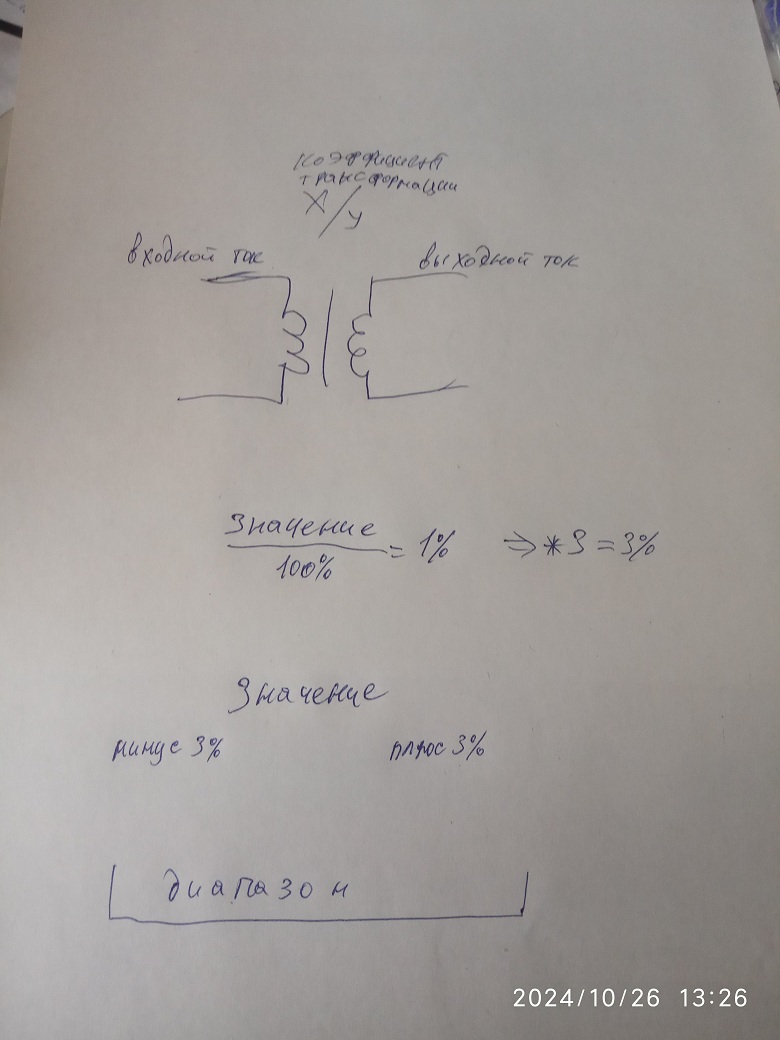 коэффициент
трансформации
X/y
входной ток выходной ток
Значение
100% = 1% => *3 = 3%
Значение
минус 3% плюс 3%
диапазон
2024/10/26 13:26